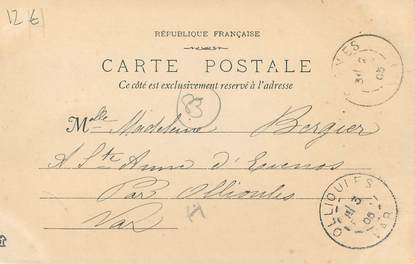 12 €
RÉPUBLIQUE FRANÇAISE
CARTE POSTALE
Ce côté est exclusivement reservé à l'adresse
83
Melle Madeleine Bergier
A Ste Anne d'Evenos
Par Ollioules
Var
OLLIOULES
VAR